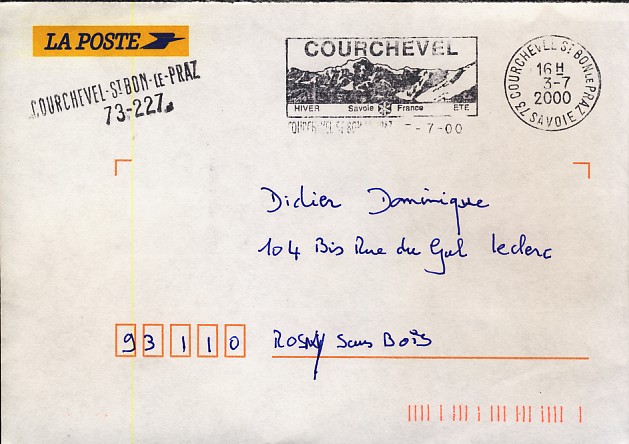 LA POSTE
COURCHEVEL-St BON-LE-PRAZ
73-227
COURCHEVEL
HIVER Savoie France ETE
COURCHEVEL St BON LE PRAZ - 7-00
COURCHEVEL St BON LE PRAZ
16 H
3-7
2000
73 SAVOIE
Didier Dominique
104 Bis Rue du Gal leclerc
93110 ROSNY sous BOIS